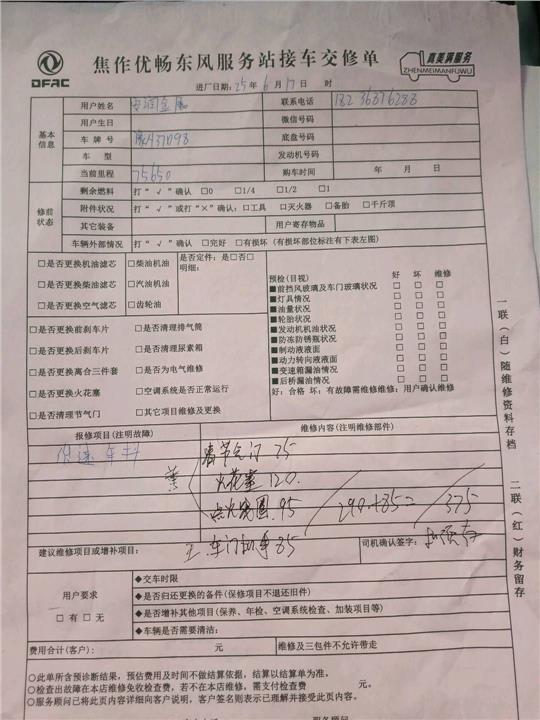 DFAC
焦作优畅东风服务站接车交修单
真美满服务
ZHENMEIMANFUWU
进厂日期:25年6月17日 时
基本信息
用户姓名
联系电话
用户生日
微信号码
车牌号
底盘号码
车型
发动机号码
当前里程 75650
购车时间 年 月 日
修前状态
剩余燃料 打“√”确认 □0 □1/4 □1/2 □1
附件状况 打“√”或打“×”确认:口工具 口灭火器 □备胎 □千斤顶
其它装备
用户寄存物品
车辆外部情况 打“√”确认 □完好 □有损坏(有损坏部位标注有下表左图)
□是否更换机油滤芯 □柴油机油 是否定件:是□否□
明细:
□是否更换柴油滤芯 □汽油机油
□是否更换空气滤芯 □齿轮油
□是否更换前刹车片 □是否清理排气筒
□是否更换后刹车片 □是否清理尿素箱
□是否更换离合三件套 □是否为电气维修
□是否更换火花塞 □空调系统是否正常运行
□是否清理节气门 □其它项目维修及更换
预检(目视) 好 坏 维修
■前挡风玻璃及车门玻璃状况 □ □ □
■灯具情况 □ □ □
■油量状况 □ □ □
■轮胎状况 □ □ □
■发动机机油状况 □ □ □
■防冻防锈瓶状况 □ □ □
■制动液液面 □ □ □
■动力转向液液面 □ □ □
■变速箱漏油情况 □ □ □
■后桥漏油情况 □ □ □
好:合格 坏:有故障需维修维修:用户确认维修
报修项目(注明故障)
维修内容(注明维修部件)
节气门 75
火花塞 120.
点火线圈.95
290+85=375
车门 85
建议维修项目或增补项目:
司机确认签字:
用户要求
□有□无
◆交车时限
◆是否归还更换的备件(保修项目不退还旧件)
◆是否增补其他项目(保养、年检、空调系统检查、加装项目等)
◆车辆是否需要清洁:
费用合计(客户): 元
维修及三包件不允许带走
○此单所含预诊断结果,预估费用及时间不做结算依据,结算以结算单为准。
○检查出故障在本店维修免收检查费,若不在本店维修,需支付检查费 元。
○服务顾问已将此页内容详细向客户说明,客户签名则表示已理解并接受此页内容。
服务顾问
一联(白)随维修资料存档
二联(红)财务留存